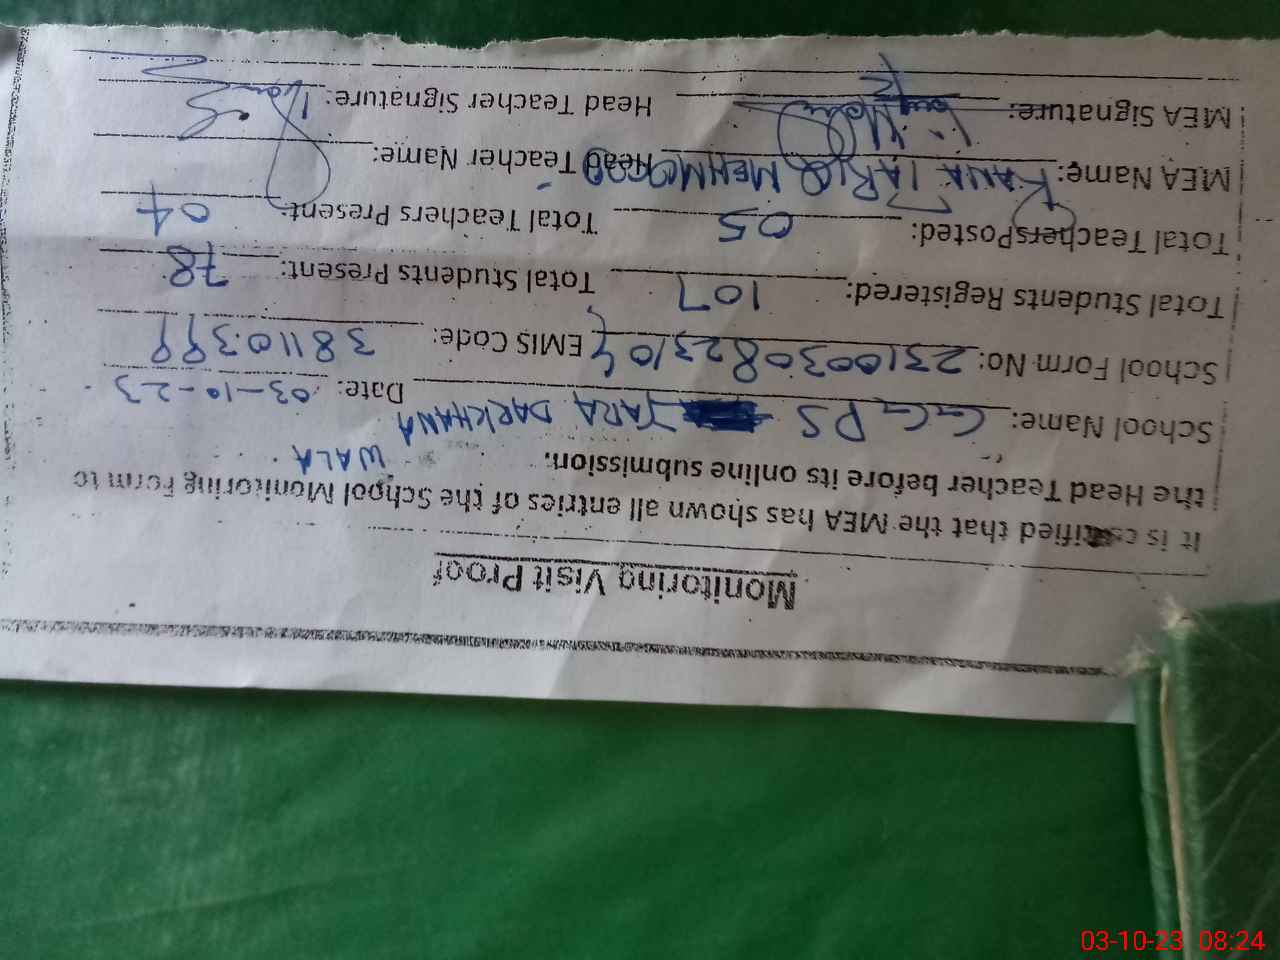 Monitoring Visit Proof
It is certified that the MEA has shown all entries of the School Monitoring Form to
the Head Teacher before its online submission.
School Name: GGPS JARA DARKHANA WALA Date: 03-10-23
School Form No: 2310030823104 EMIS Code: 38110399
Total Students Registered: 107 Total Students Present: 78
Total Teachers Posted: 05 Total Teachers Present: 04
MEA Name: RANA TARIQ MEHMOOD Head Teacher Name:
MEA Signature: Head Teacher Signature:
03-10-23 08:24